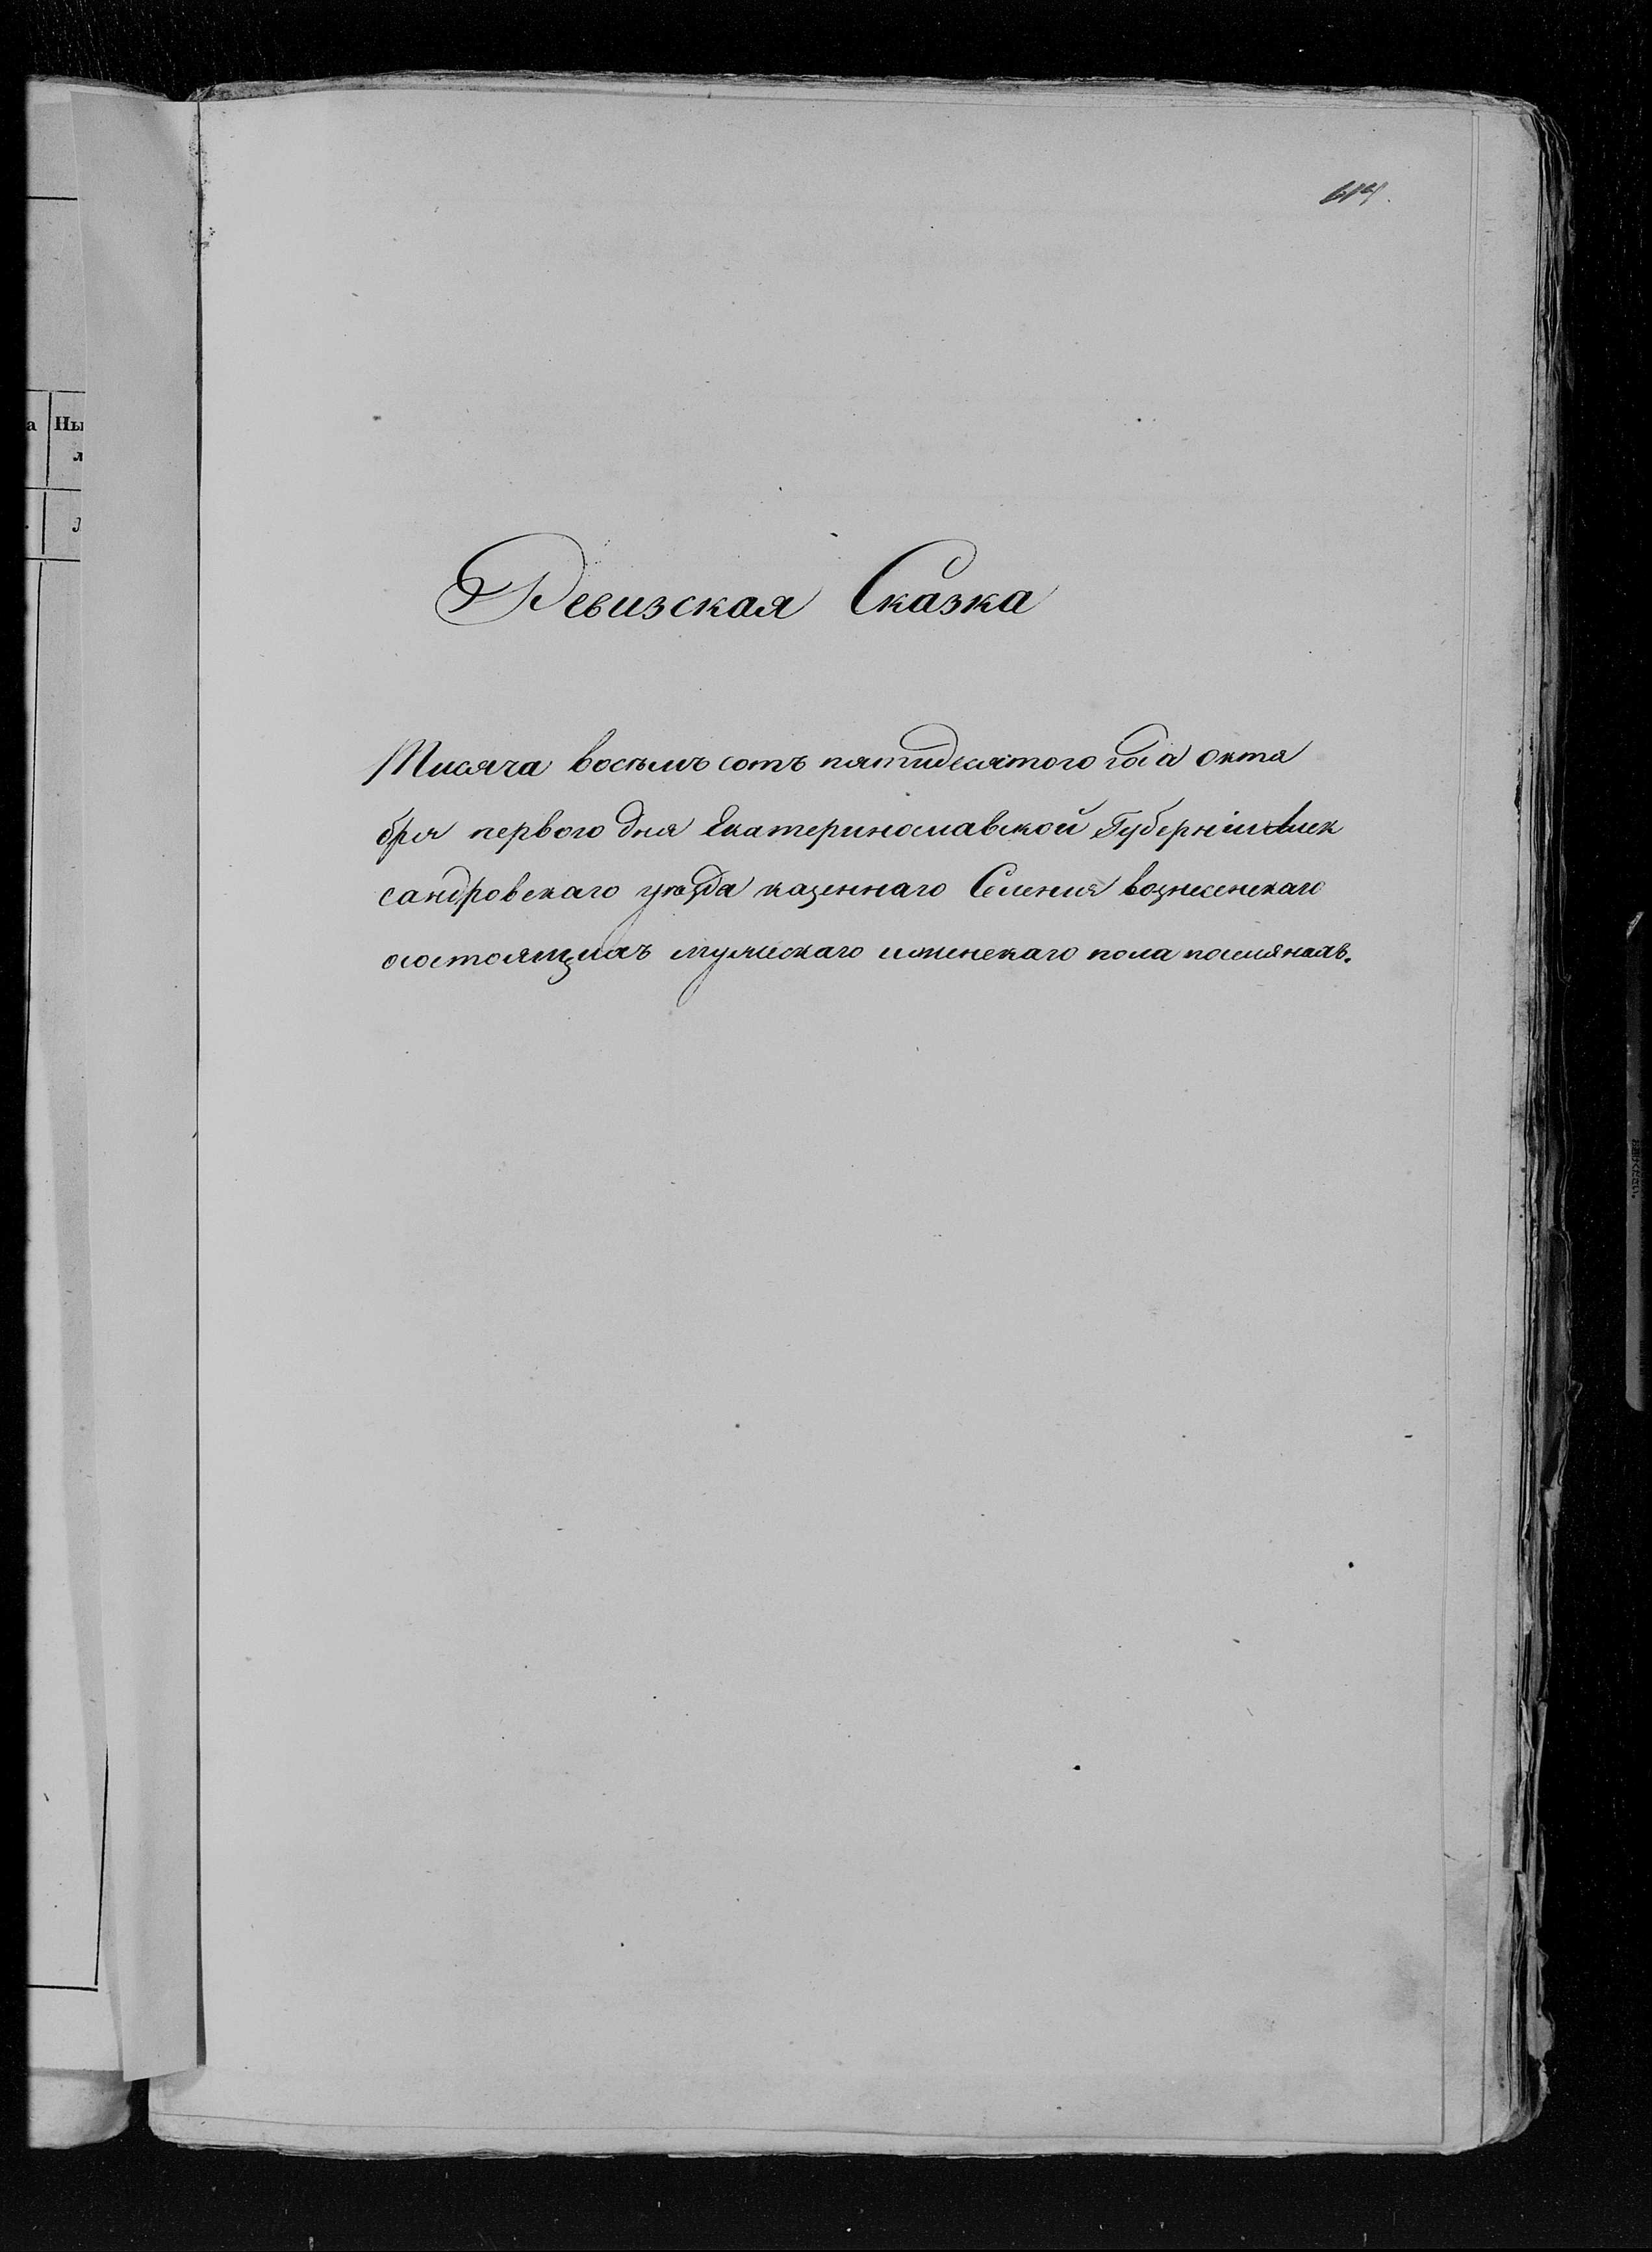 Ревизская Сказка
Тисяча восемь сотъ пятидесятого года октя
бря первого дня Екатеринославской Губерніи Алек
сандровскаго уѣзда казеннаго Селения вознесенскаго
осостоящихъ мужескаго иженскаго пола поселянахъ.